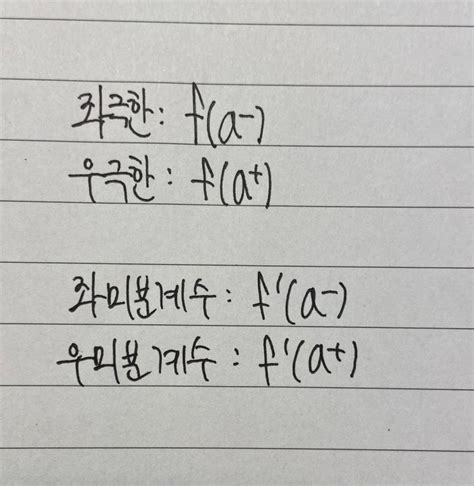 좌극한: f(a-)
우극한: f(a+)
좌미분계수: f'(a-)
우미분계수: f'(a+)